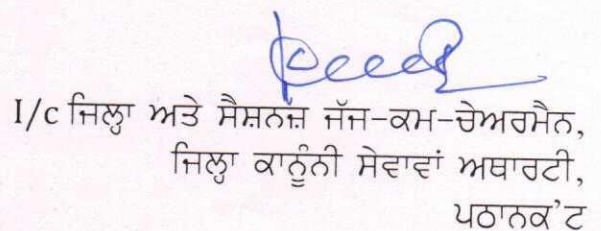 I/c ਜਿਲ੍ਹਾ ਅਤੇ ਸੈਸ਼ਨਜ਼ ਜੱਜ-ਕਮ-ਚੇਅਰਮੈਨ,
ਜਿਲ੍ਹਾ ਕਾਨੂੰਨੀ ਸੇਵਾਵਾਂ ਅਥਾਰਟੀ,
ਪਠਾਨਕ'ਟ